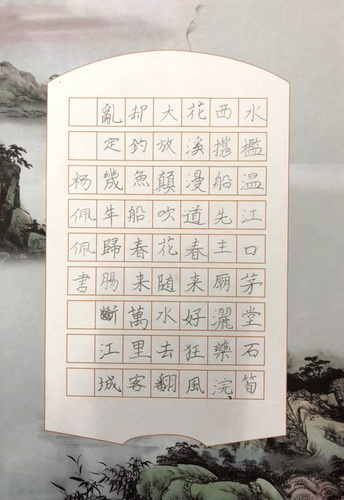 水檻温江口茅堂石筍
西攜船先主廟灑藥浣
花溪漫道春来好狂風
大放顛吹花随水去翻
却釣魚船春来萬里客
亂定幾年歸腸斷江城
杨佩佩書